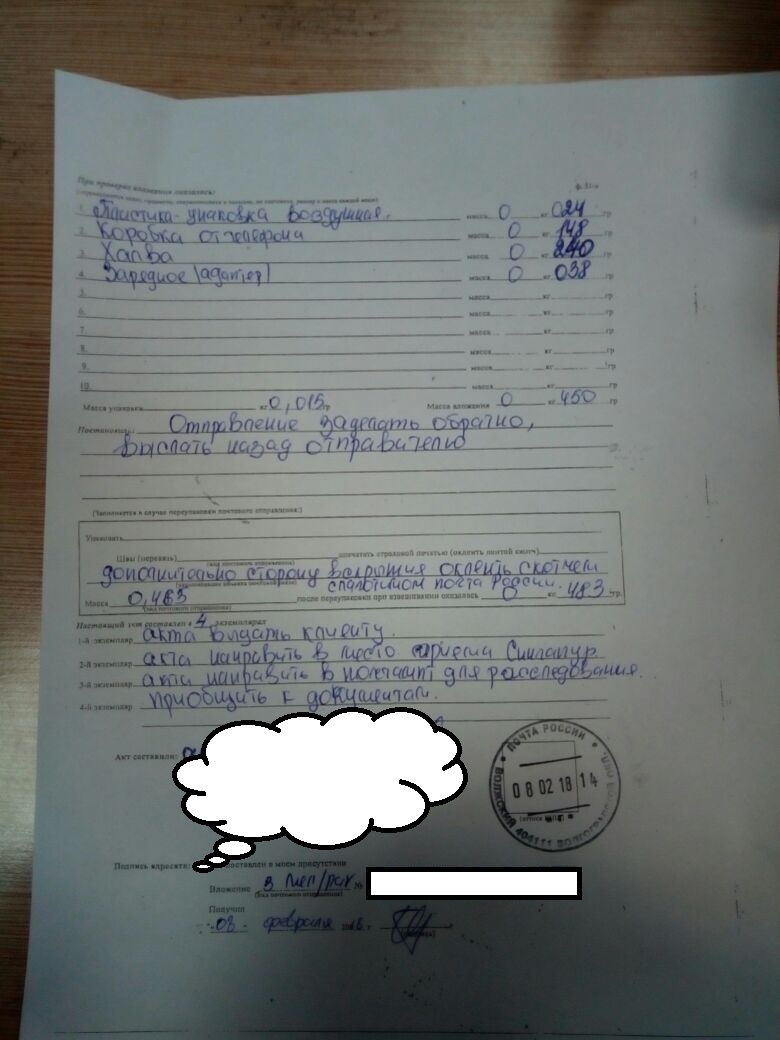 При проверке вложения оказалось:
ф. 51-в
1. Пластика-упаковка воздушная. масса 0 кг 024 гр
2. Коробка от телефона масса 0 кг 148 гр
3. Халва масса 0 кг 240 гр
4. Зарядное (адаптер) масса 0 кг 038 гр
5. масса кг гр
6. масса кг гр
7. масса кг гр
8. масса кг гр
9. масса кг гр
10. масса кг гр
Масса упаковки кг 0,015 гр Масса вложения 0 кг 450 гр
Постановили: Отправление заделать обратно,
выслать назад отправителю
(Заполняется в случае переупаковки почтового отправления:)
Упаковать
Швы (перевязь) опечатать страховой печатью (оклеить лентой скотч)
(вид почтового отправления)
дополнительно сторону вскрытия оклеить скотчем
с логотипом почта России.
Масса 0,465 после переупаковки при взвешивании оказалась 0 кг 483 гр.
(вид почтового отправления)
Настоящий акт составлен в 4 экземплярах
1-й экземпляр акта выдать клиенту.
2-й экземпляр акта направить в место приема Сингапур
3-й экземпляр акта направить в почтамт для расследования.
4-й экземпляр приобщить к документам.
Акт составили:
ПОЧТА РОССИИ
08 02 18 14
ВОЛЖСКИЙ 404111 ВОЛГОГРАД
Подпись адресата: составлен в моем присутствии
Вложение з мел/рах №
(вид почтового отправления)
Получил
08 февраля г
(подпись)